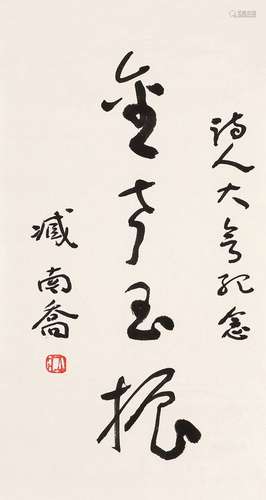 诗人大会纪念
金声玉振
臧南喬